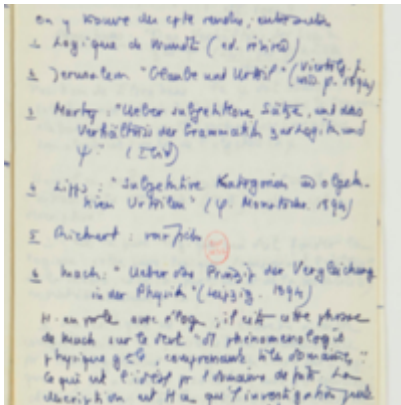 on y trouve des cpte rendus, entre autres
1. Logique de Wundt (ed. révisée)
2 Jerusalem "Glaube und Urteil" (Viertelj. f. wiss. p. 1894)
3 Marty: "Ueber subjektlose Sätze, und das
Verhältnis der Grammatik zur Logik und
ψ." (Ibid)
4 Lipps: "Subjektive Kategorien in objek-
tiven Urteilen" (φ. Monatshe. 1894)
5 Rickert:
6 Mach: "Ueber das Prinzip der Vergleichung
in der Physik" (Leipzig. 1894)
H. en parle avec éloge; il cite cette phrase
de Mach sur le "phénoménologie
physique gale, comprenant ts les domaines":
ce qui est l'idéal pr l'domaine de fait. La
description est que l'investigation